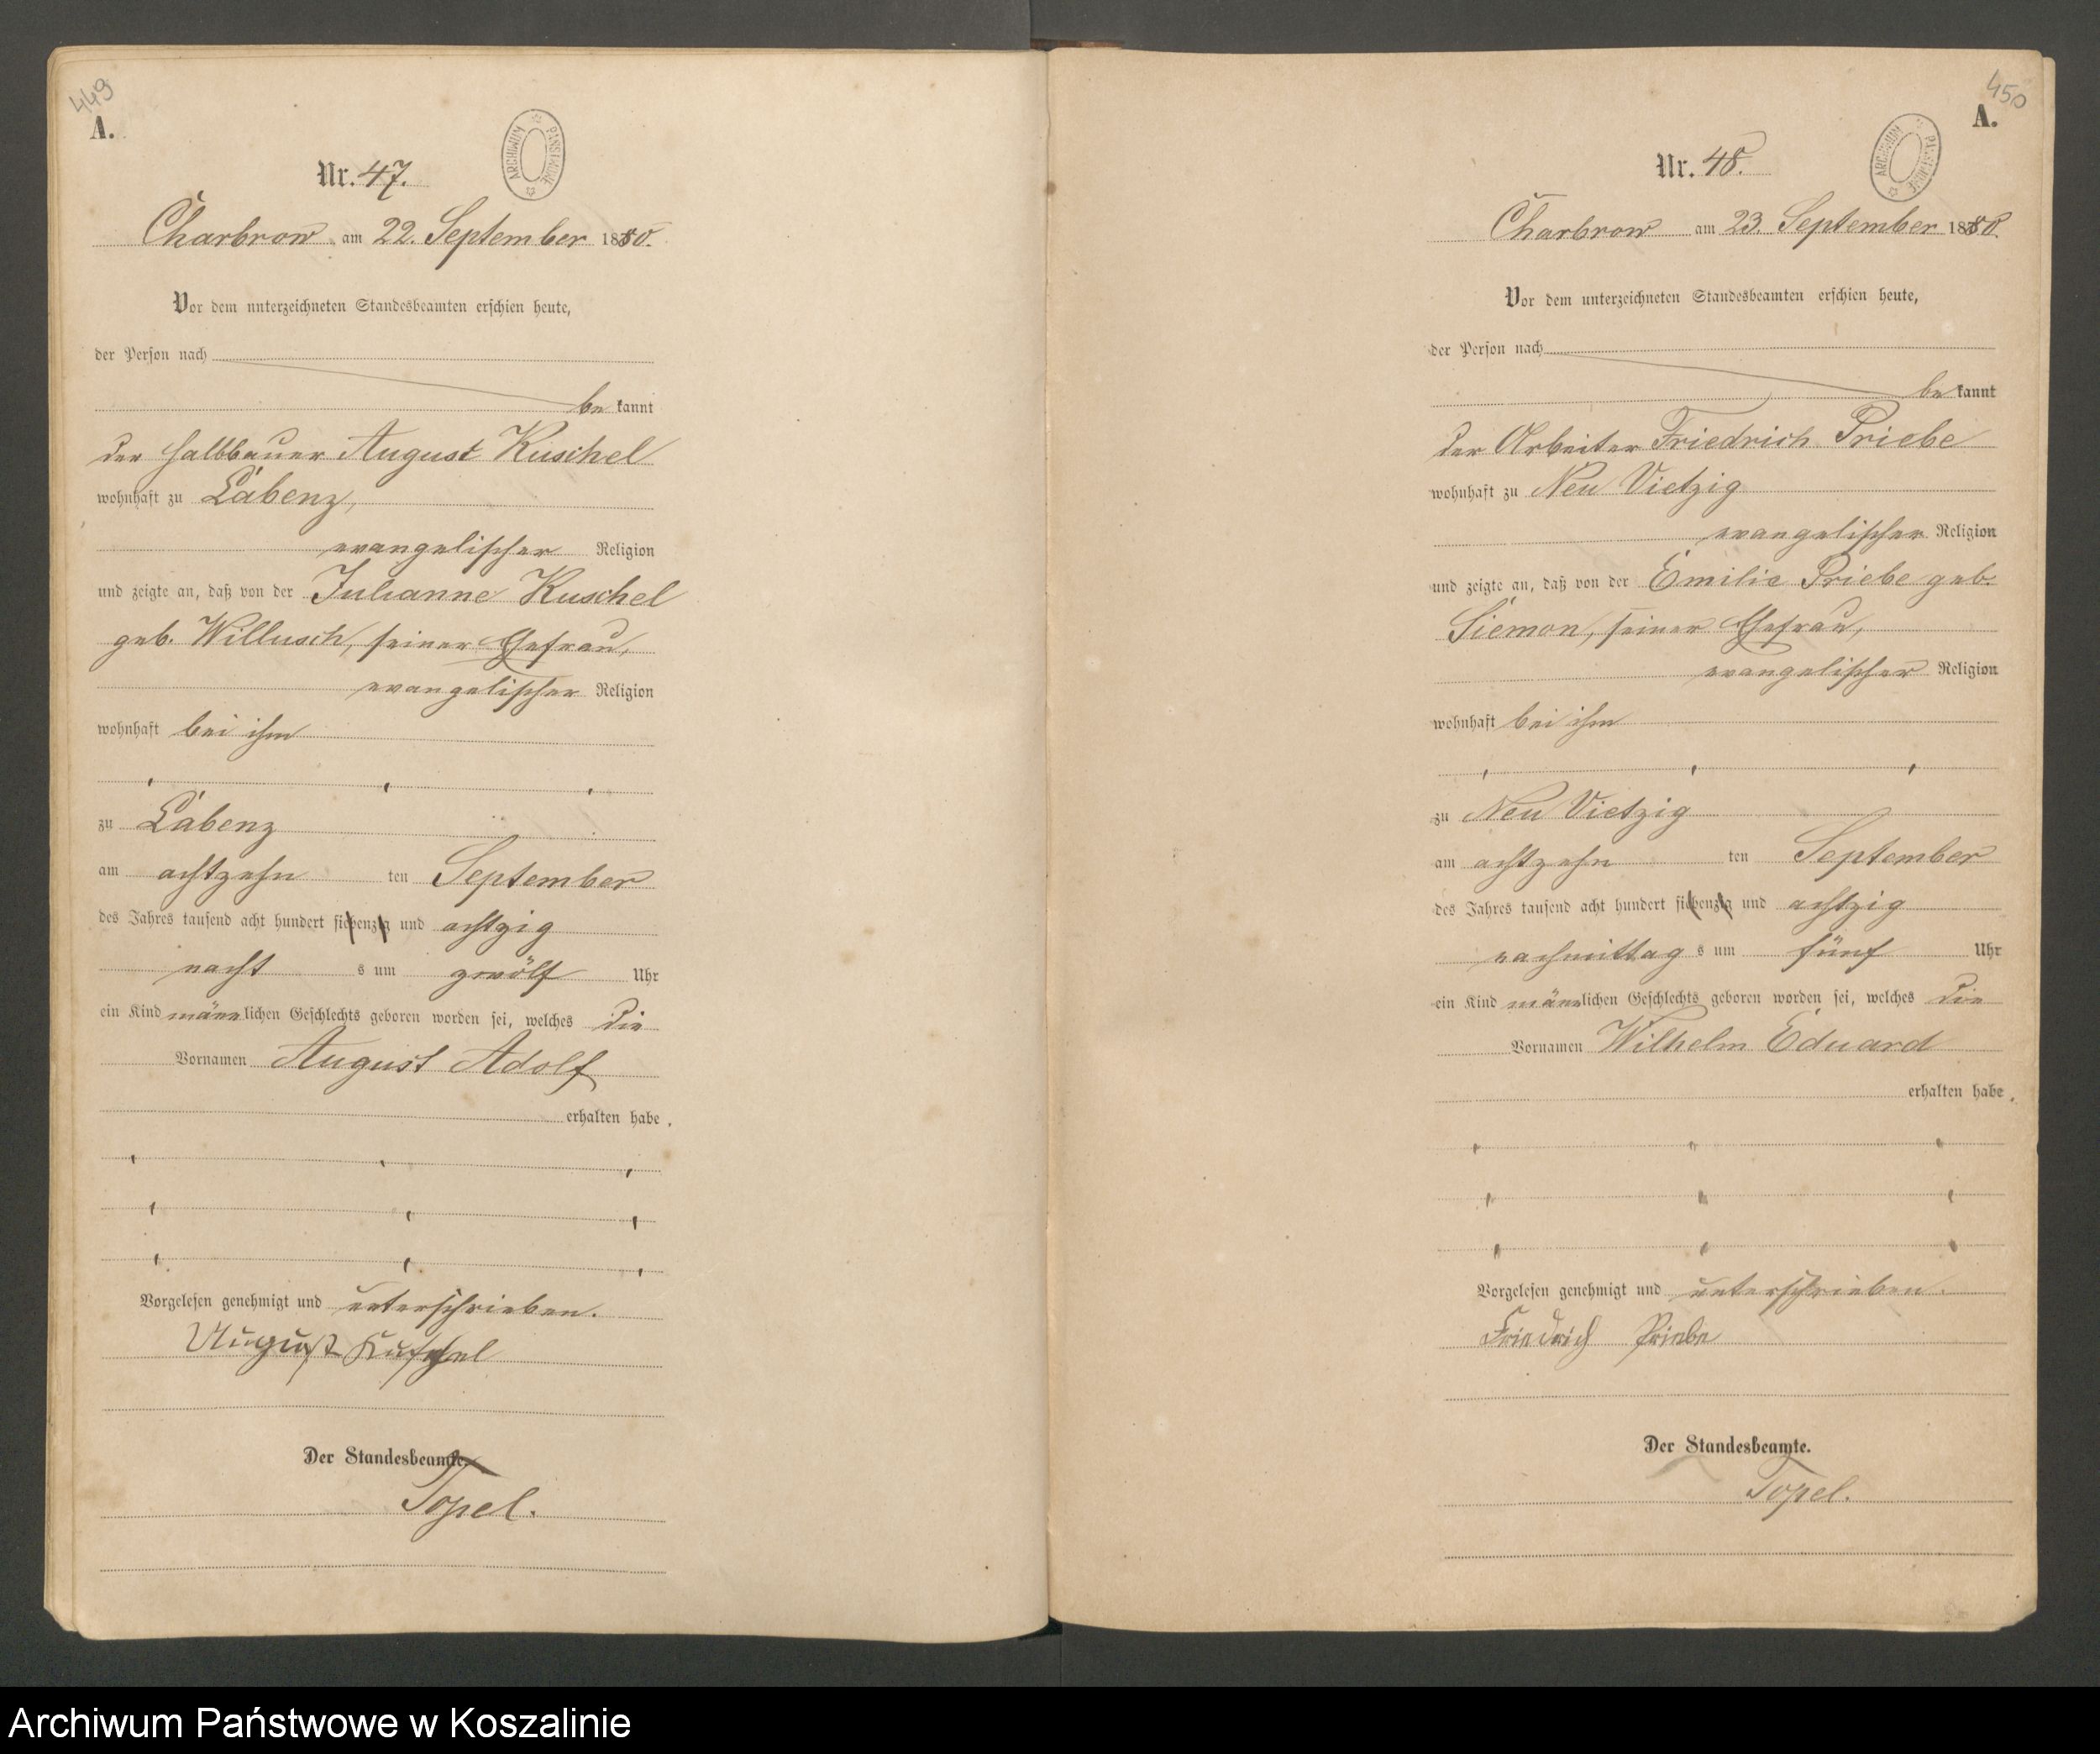 449
A.
ARCHIWUM PAŃSTWOWE
Nr. 47.
Charbrow am 22. September 1880.
Vor dem unterzeichneten Standesbeamten erschien heute,
der Person nach
be kannt
der Halbbauer August Kuschel
wohnhaft zu Labenz,
evangelischer Religion
und zeigte an, daß von der Julianne Kuschel
geb. Willusch, seiner Ehefrau,
evangelischer Religion
wohnhaft bei ihm
zu Labenz
am achtzehn ten September
des Jahres tausend acht hundert siebenzig und achtzig
nacht s um zwölf Uhr
ein Kind männlichen Geschlechts geboren worden sei, welches die
Vornamen August Adolf
erhalten habe.
Vorgelesen genehmigt und unterschrieben.
August Kuschel
Der Standesbeamte.
Topel.
450
A.
ARCHIWUM PAŃSTWOWE
Nr. 48.
Charbrow am 23. September 1880.
Vor dem unterzeichneten Standesbeamten erschien heute,
der Person nach
be kannt
der Arbeiter Friedrich Priebe
wohnhaft zu Neu Vietzig
evangelischer Religion
und zeigte an, daß von der Emilie Priebe geb.
Siemon, seiner Ehefrau,
evangelischer Religion
wohnhaft bei ihm
zu Neu Vietzig
am achtzehn ten September
des Jahres tausend acht hundert siebenzig und achtzig
nachmittag s um fünf Uhr
ein Kind männlichen Geschlechts geboren worden sei, welches die
Vornamen Wilhelm Eduard
erhalten habe.
Vorgelesen genehmigt und unterschrieben.
Friedrich Priebe
Der Standesbeamte.
Topel.
Archiwum Państwowe w Koszalinie